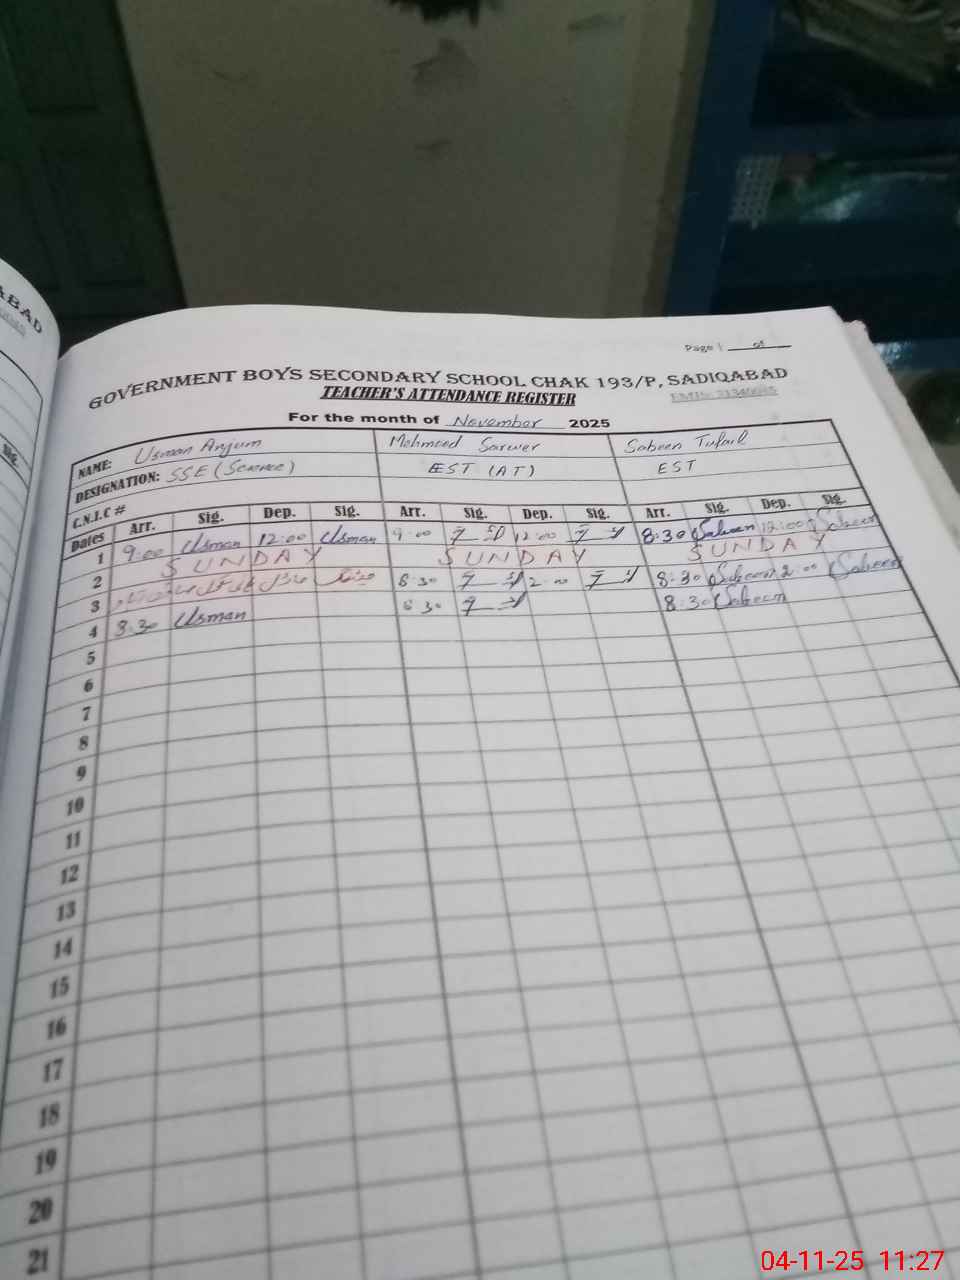 ABAD
Sig.
Page | 01
GOVERNMENT BOYS SECONDARY SCHOOL CHAK 193/P, SADIQABAD
TEACHER'S ATTENDANCE REGISTER
For the month of November 2025
NAME: Usman Anjum Mehmood Sarwer Sabeen Tufail
DESIGNATION: SSE (Science) EST (AT) EST
C.N.I.C #
Dates Arr. Sig. Dep. Sig. Arr. Sig. Dep. Sig. Arr. Sig. Dep. Sig.
1 9:00 Usman 12:00 Usman 9:00 12:00 8:30 Sabeen 12:00 Sabeen
2 SUNDAY SUNDAY SUNDAY
3 8:30 2:00 8:30 Sabeen 2:00 Sabeen
4 8:30 Usman 8:30 8:30 Sabeen
5
6
7
8
9
10
11
12
13
14
15
16
17
18
19
20
21
04-11-25 11:27